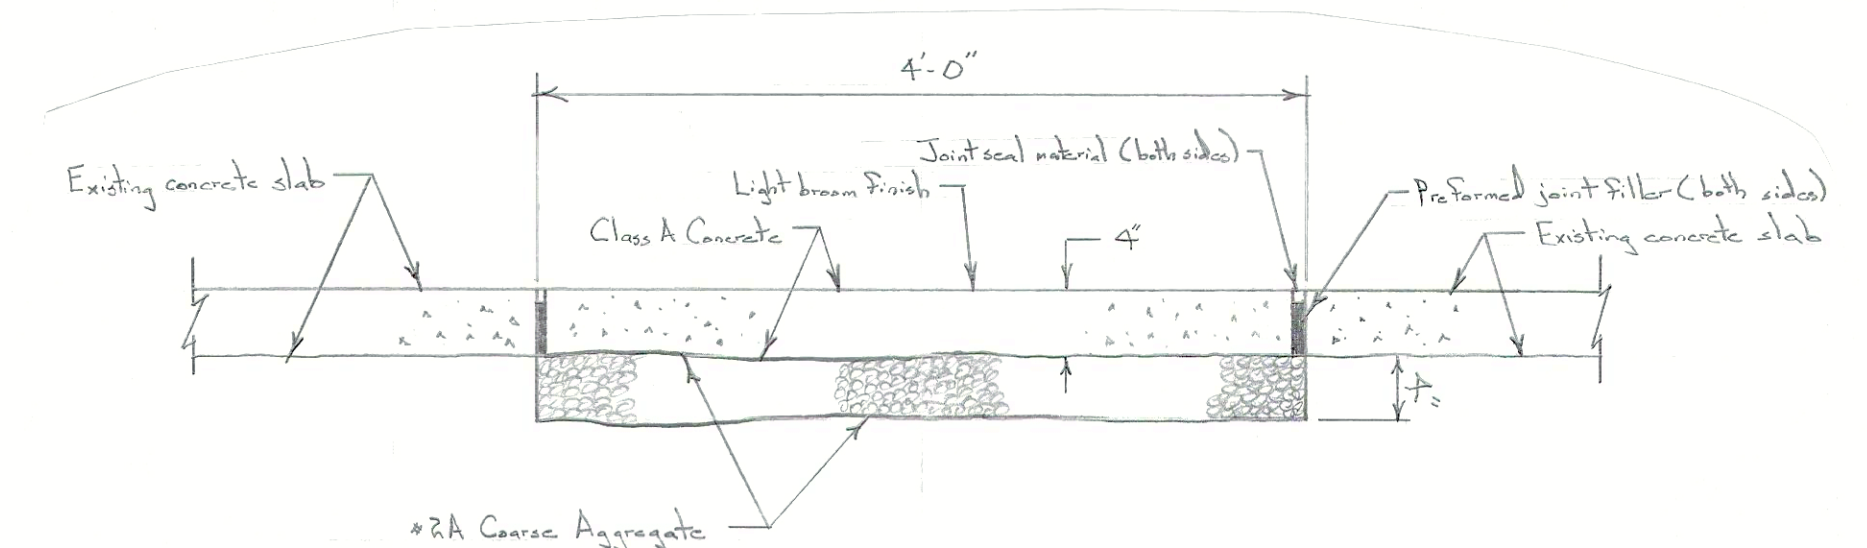 4'-0"
Joint seal material (both sides)
Existing concrete slab
Light broom finish
Preformed joint filler (both sides)
Class A Concrete
4"
Existing concrete slab
4"
#2A Coarse Aggregate